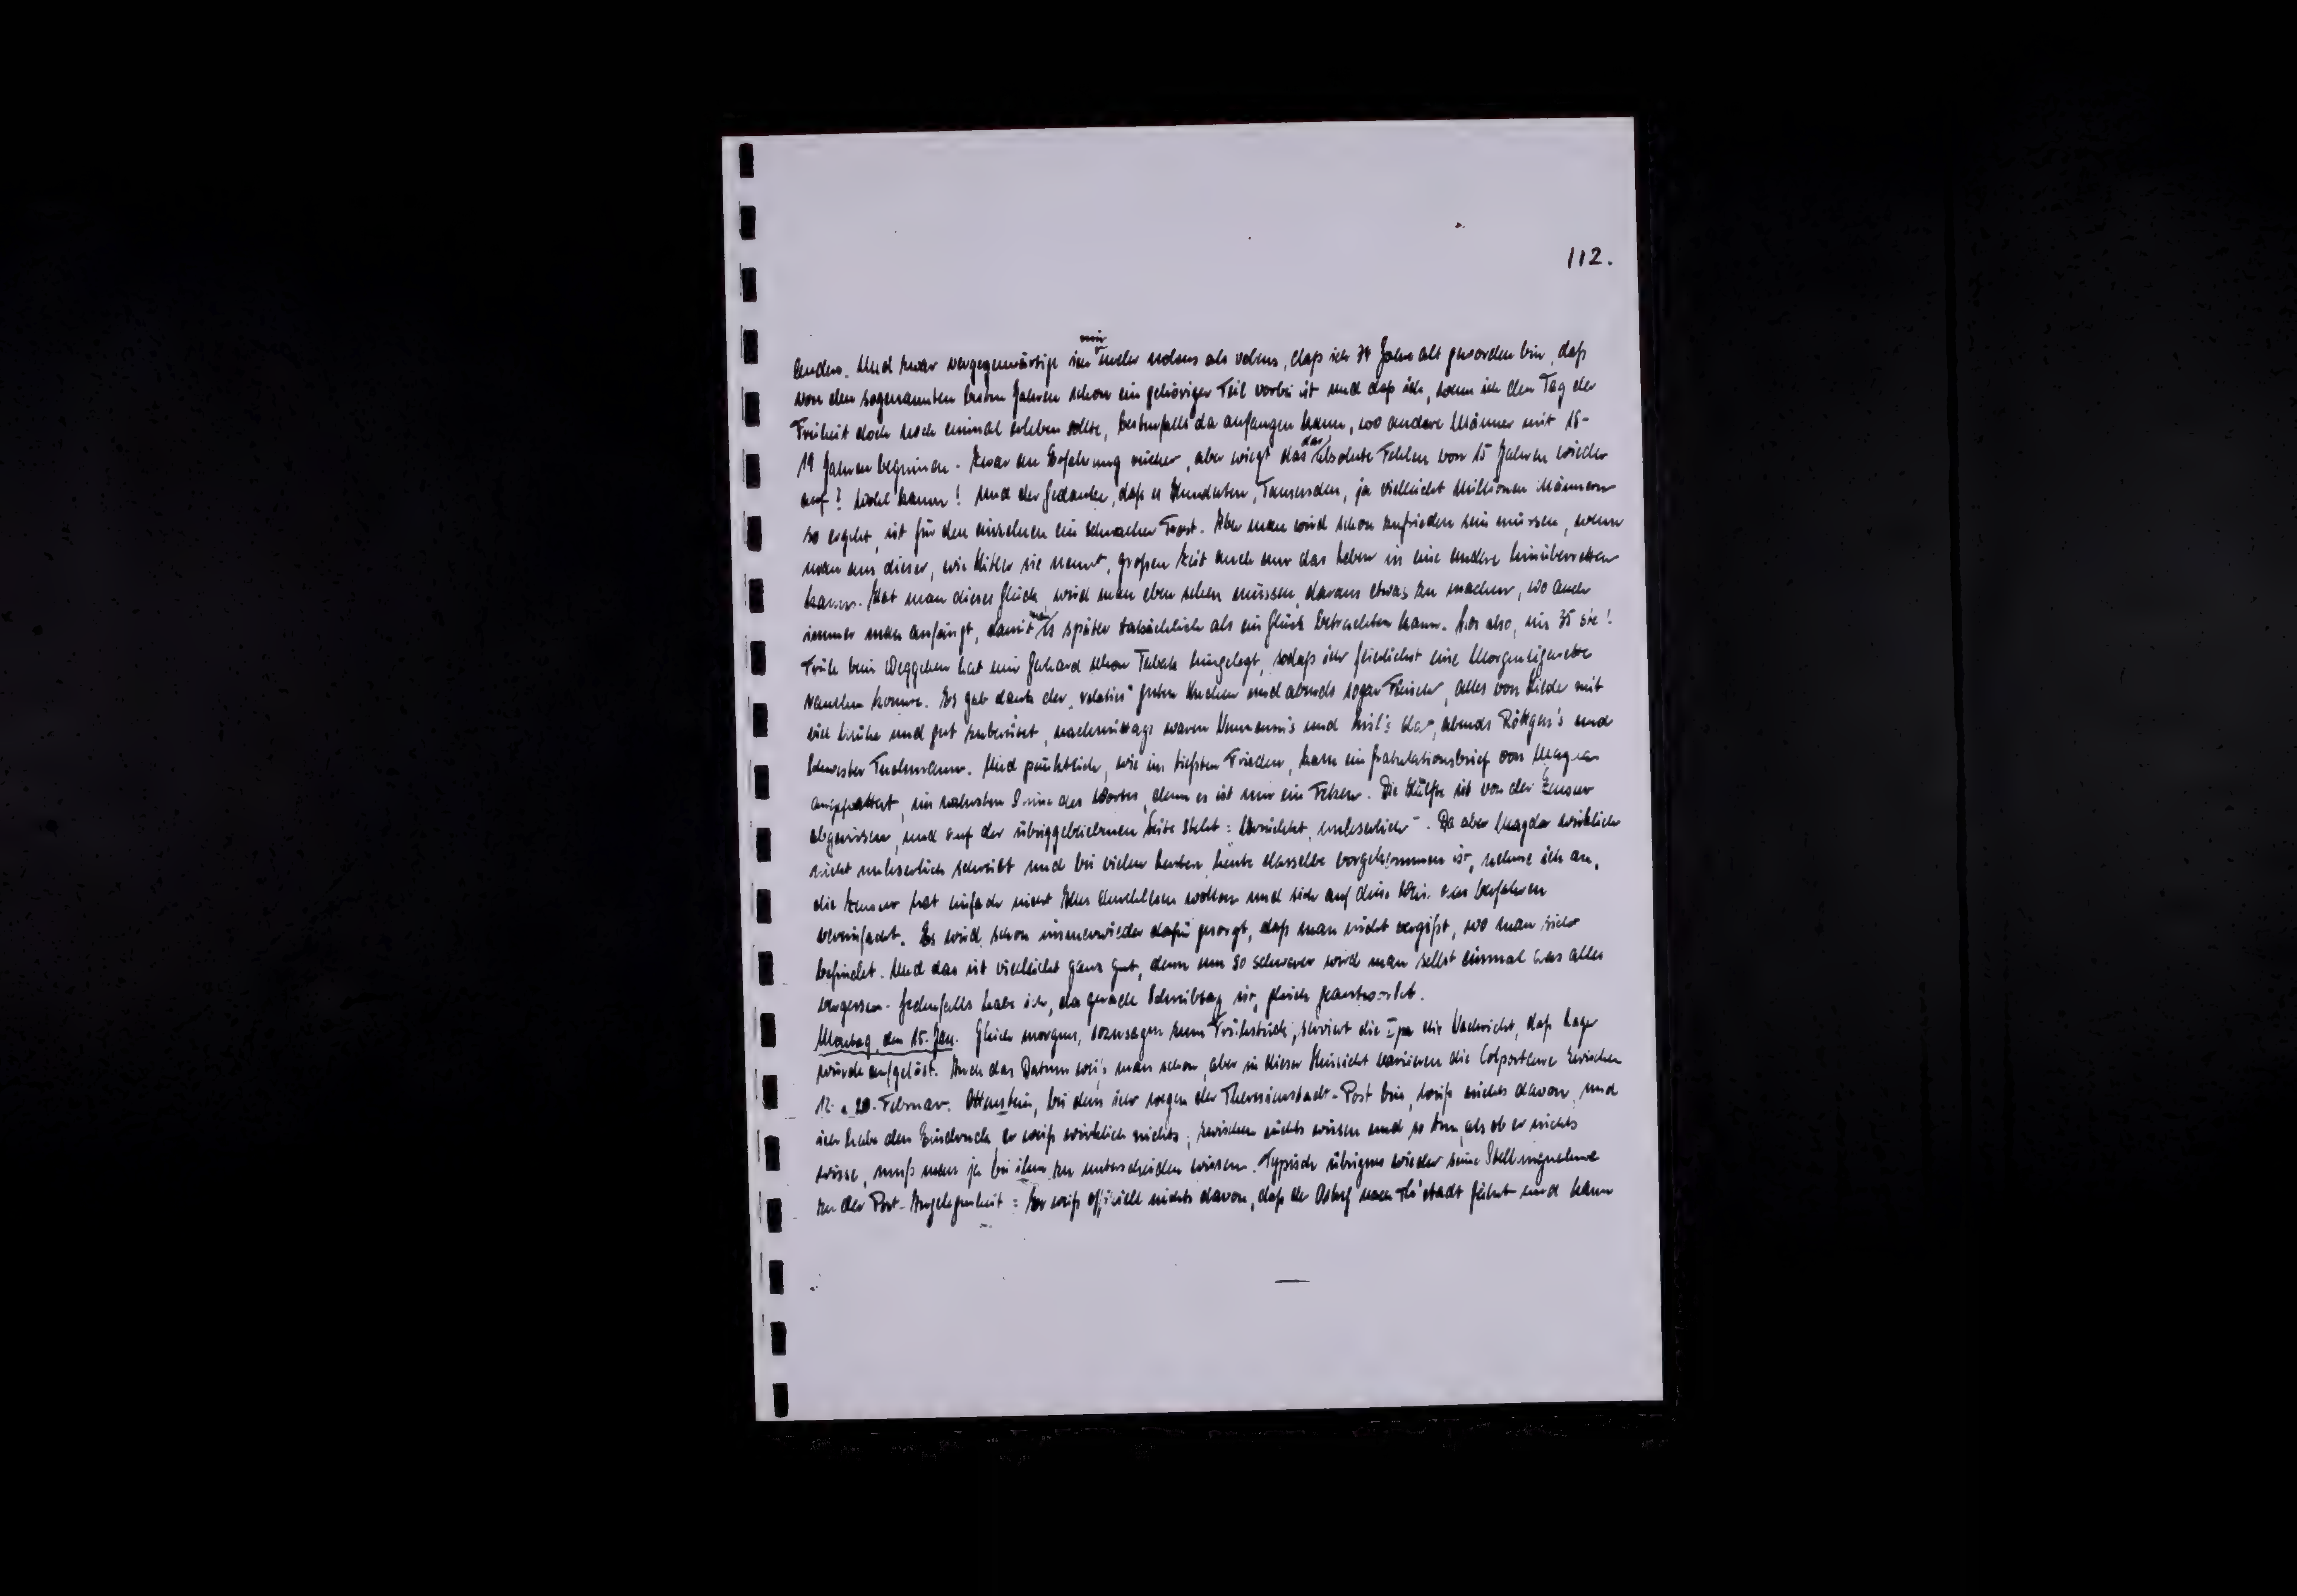 112.
anders. Und zwar vergegenwärtige ich mir mehr nolens als volens, daß ich 34 Jahre alt geworden bin, daß
von den sogenannten besten Jahren schon ein gehöriger Teil vorbei ist und daß ich, wenn ich den Tag der
Freiheit doch noch einmal erleben sollte, bestenfalls da anfangen kann, wo andere Männer mit 18-
19 Jahren beginnen. Zwar an Erfahrung reicher, aber wiegt das das absolute Fehlen von 15 Jahren wieder
auf? Wohl kaum! Und der Gedanke, daß es Hunderten, Tausenden, ja vielleicht Millionen Männern
so ergeht, ist für den einzelnen ein schwacher Trost. Aber man wird schon zufrieden sein müssen, wenn
man aus dieser, wie Hitler sie nennt, großen Zeit auch nur das Leben in eine andere hinüberretten
kann. Hat man dieses Glück, wird man eben sehen müssen, daraus etwas zu machen, wo auch
immer man anfängt, damit man es später tatsächlich als ein Glück betrachten kann. Los also, ins 35 ste!
Früh beim Weggehen hat mir Gerhard schon Tabak hingelegt, sodaß ich feierlichst eine Morgenzigarette
rauchen konnte. Es gab dank der relativ guten Kuchen und abends sogar Fleisch, alles von Liede mit
viel Mühe und gut zubereitet, nachmittags waren Neumann's und da, abends Röttgen's und
Schwester. Und pünktlich, wie im tiefsten Frieden, kam ein Gratulationsbrief von Magda
angeflattert, im wahrsten Sinne des Wortes, denn es ist nur ein Fetzen. Die Hälfte ist von der Zensur
abgerissen, und auf der übriggebliebenen Seite steht: Vernichtet, unleserlich". Da aber Magda wirklich
nicht unleserlich schreibt und bei vielen Leuten heute dasselbe vorgekommen ist, nehme ich an,
die Zensur hat einfach nicht Alles durchlesen wollen und sich auf diese Weise das Verfahren
vereinfacht. Es wird schon immerwieder dafür gesorgt, daß man nicht vergißt, wo man sich
befindet. Und das ist vielleicht ganz gut, denn um so schwerer wird man selbst einmal das alles
vergessen. Jedenfalls habe ich, da gerade Schreibtag ist, gleich geantwortet.
Montag, den 15. Jan. Gleich morgens, sozusagen zum Frühstück, serviert die Ipa die Nachricht, daß Lager
würde aufgelöst. Auch das Datum weiß man schon, aber in dieser Hinsicht variieren die Colporteure zwischen
12. u. 20. Februar. Ottenstein, bei dem ich wegen der Theresienstadt-Post bin, weiß nichts davon, und
ich habe den Eindruck, er weiß wirklich nichts; zwischen nichts wissen und so tun, als ob er nichts
wisse, muß man ja bei ihm zu unterscheiden wissen. Typisch übrigens wieder seine Stellungnahme
zu der Post-Angelegenheit: Er weiß offiziell nichts davon, daß der nach Th'stadt fährt und kann